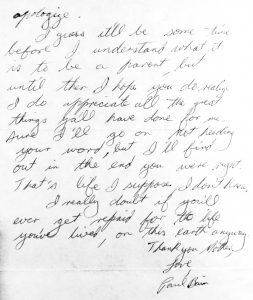 apologize.
I guess itll be some time
before I understand what it
is to be a parent, but
until then I hope you do realize
I do appreciate all the great
things yall have done for me.
sure I'll go on not heeding
your word, but I'll find
out in the end you were right.
That's life I suppose, I don't know.
I really doubt if you'll
ever get repaid for the life
youve lived, on this earth anyway.
Thank you Mother,
Love
Paul